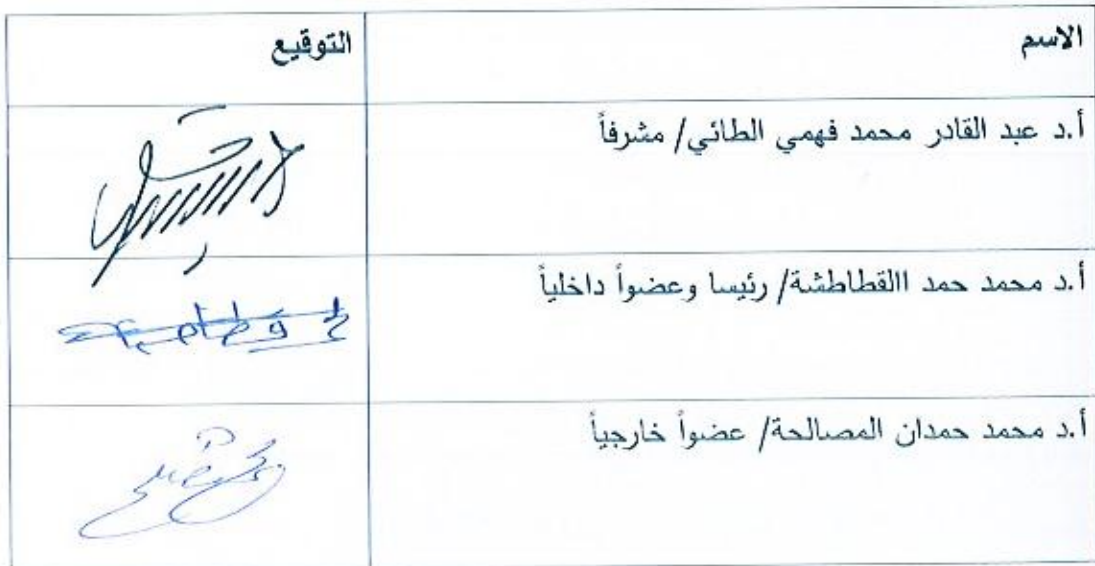 الاسم
التوقيع
أ.د عبد القادر محمد فهمي الطائي/ مشرفاً
أ.د محمد حمد االقطاطشة/ رئيسا وعضواً داخلياً
أ.د محمد حمدان المصالحة/ عضواً خارجياً